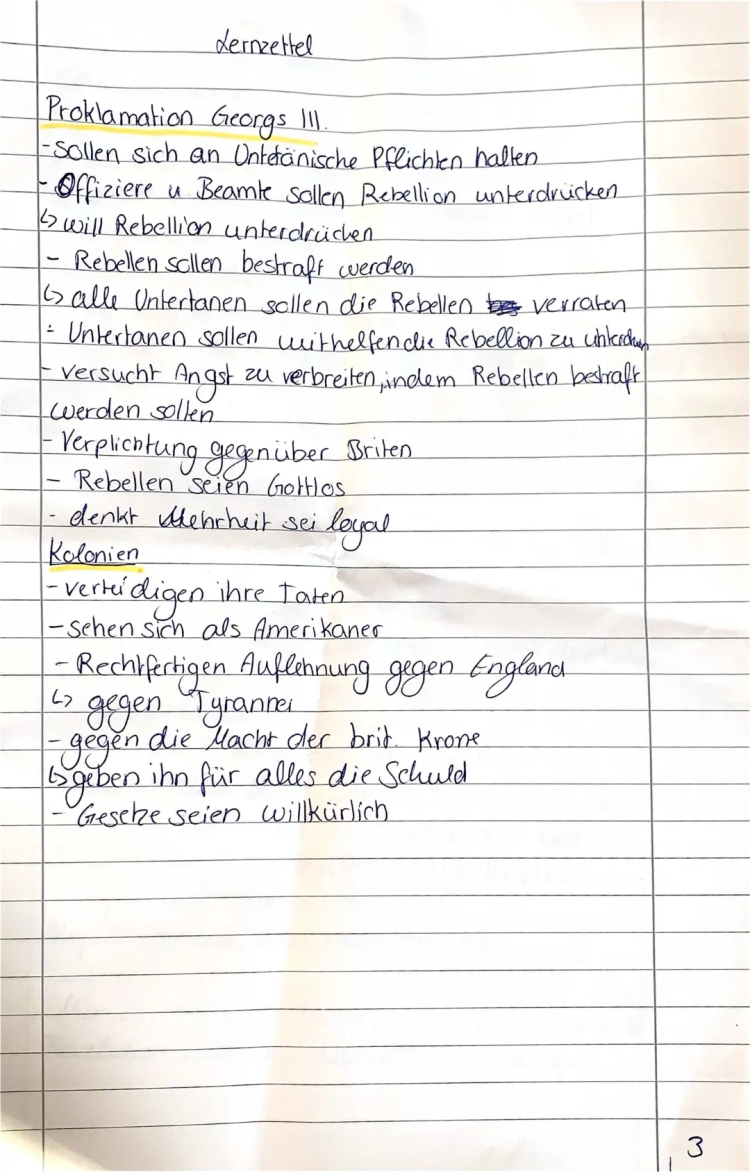 Lernzettel
Proklamation Georgs III.
- sollen sich an Untetänische Pflichten halten
- Offiziere u Beamte sollen Rebellion unterdrücken
↳ will Rebellion unterdrücken
- Rebellen sollen bestraft werden
↳ alle Untertanen sollen die Rebellen verraten
- Untertanen sollen mithelfen die Rebellion zu
- versucht Angst zu verbreiten, indem Rebellen bestraft
werden sollen
- Verplichtung gegenüber Briten
- Rebellen seien Gottlos
- denkt Mehrheit sei loyal
Kolonien
- verteidigen ihre Taten
- sehen sich als Amerikaner
- Rechtfertigen Auflehnung gegen England
↳ gegen Tyrannei
- gegen die Macht der brit. Krone
↳ geben ihn für alles die Schuld
- Gesetze seien willkürlich
3